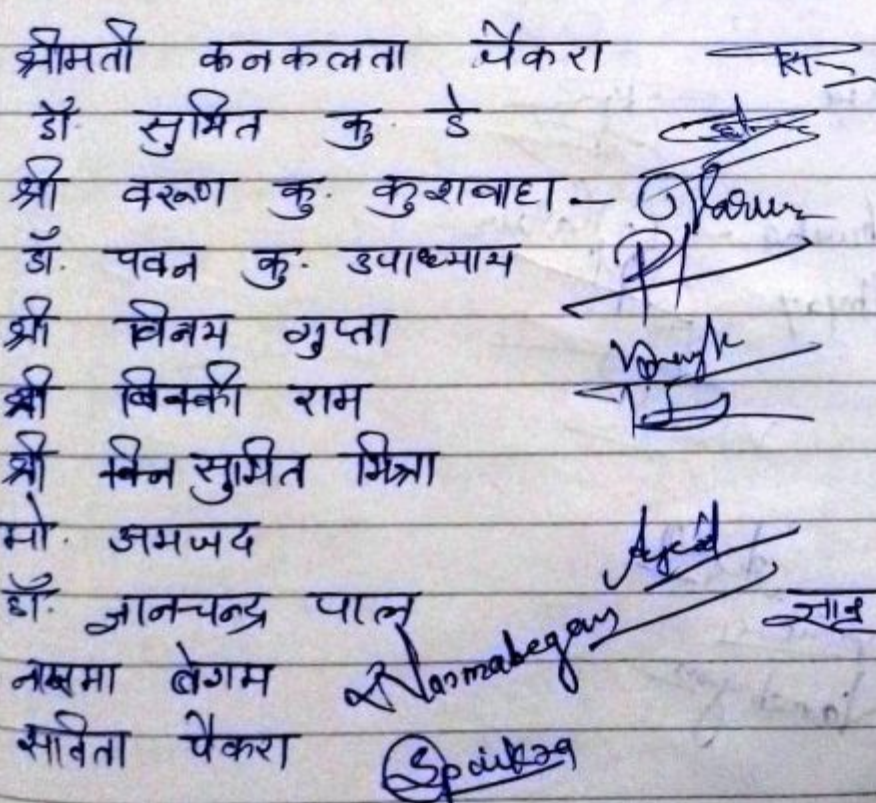 श्रीमती कनकलता पैकरा
डॉ. सुमित कु. डे
श्री वरूण कु. कुशवाहा - Varun
डॉ. पवन कु. उपाध्याय
श्री विनय गुप्ता
श्री विक्की राम
श्री सुमित मित्रा
मो. अमजद
डॉ. ज्ञानचन्द्र पाल ज्ञान
नाजमा बेगम Nazmabegam
सविता पैकरा Spaikra